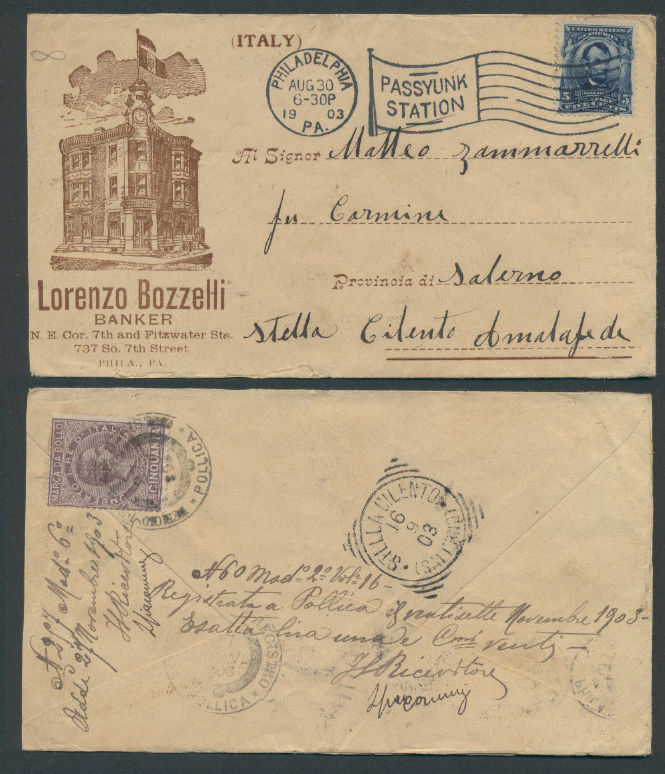 (ITALY)
PHILADELPHIA
AUG 30
6-30P
1903
PA.
PASSYUNK
STATION
UNITED STATES
OF AMERICA
5 5
FIVE CENTS
Al Signor Matteo Zammarrelli
fu Carmine
Provincia di Salerno
Stella Cilento Amalafede
Lorenzo Bozzelli
BANKER
N. E. Cor. 7th and Fitzwater Sts.
737 So. 7th Street
PHILA., PA.
MARCA DA BOLLO
CINQUANTA
POLLICA
STELLA CILENTO
16
9
03
N 60 Mod. 2º Vol. 16 -
Registrata a Pollica Ventisette Novembre 1903 -
Esatta lira una e Cmi venti -
Il Ricevitore
N 207 Mod. 6º
Addì 27 Novembre 1903
Il Ricevitore
REGISTRO
POLLICA
PHILA